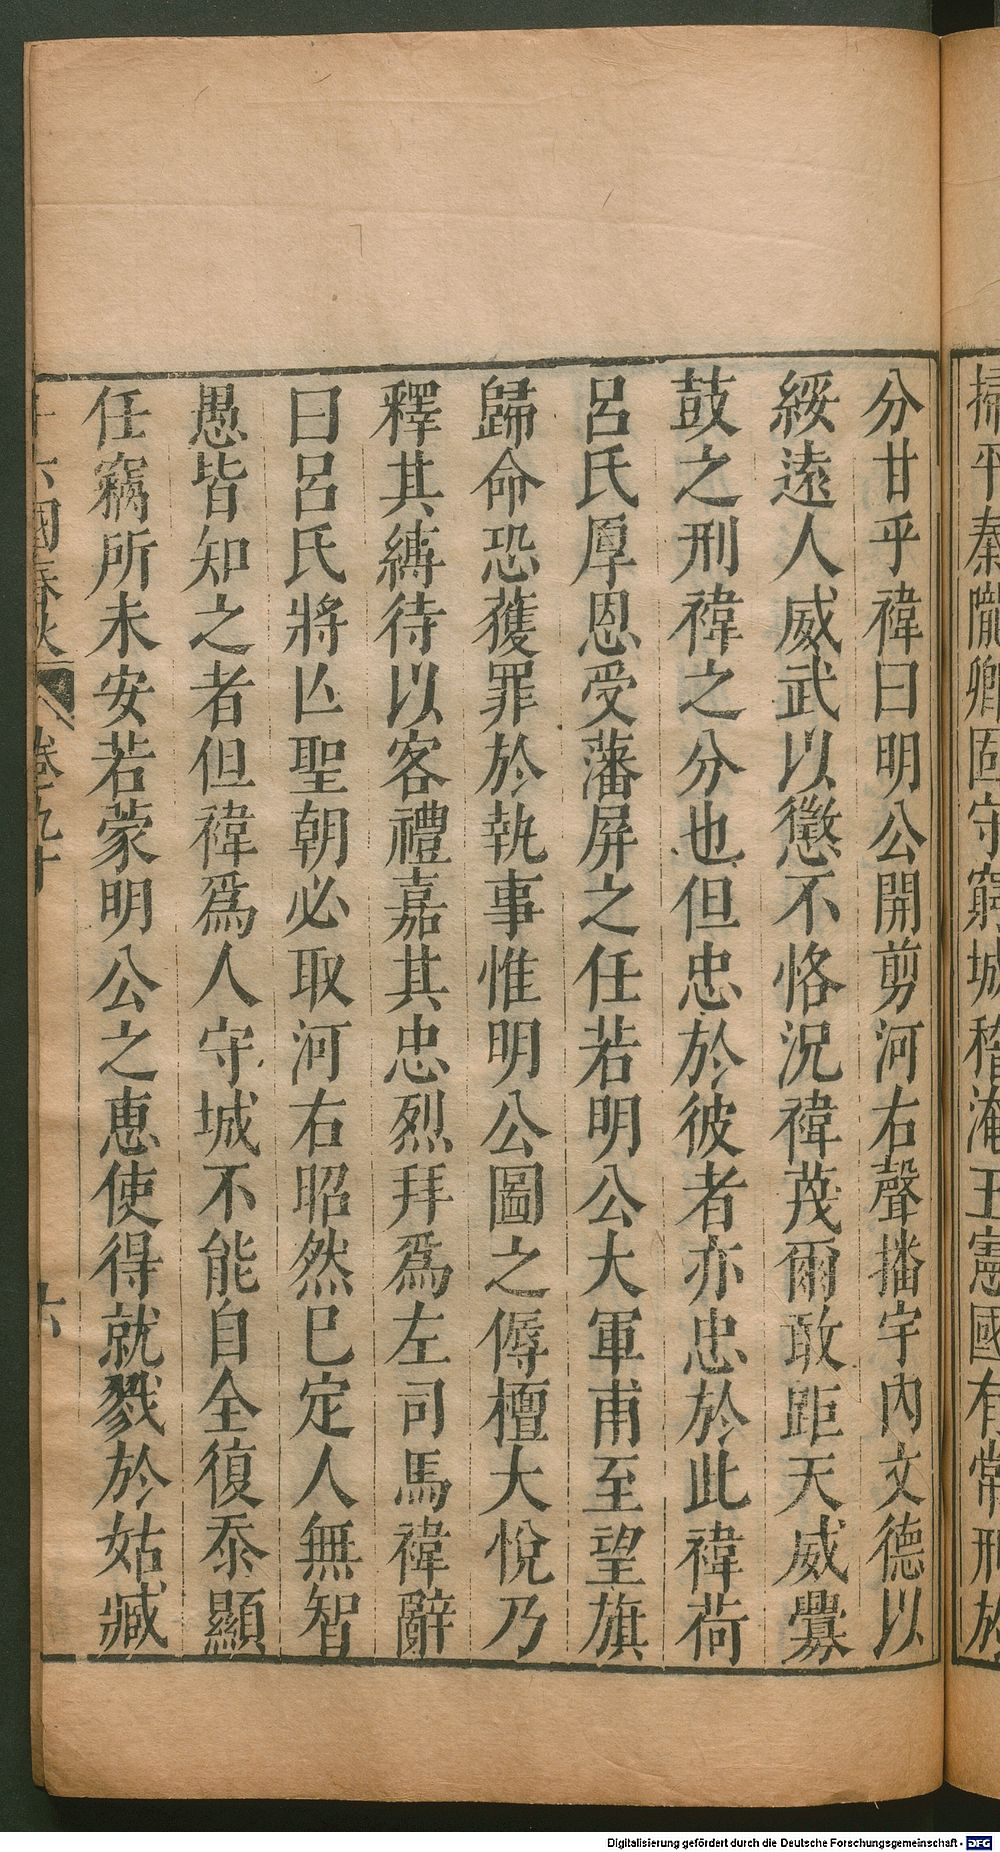 掃平秦隴卿固守窮城稽淹王憲國有常刑於
分甘乎禕曰明公開剪河右聲播宇內文德以
綏遠人威武以懲不恪況禕茂爾敢距天威釁
鼓之刑禕之分也但忠於彼者亦忠於此禕荷
呂氏厚恩受藩屏之任若明公大軍甫至望旗
歸命恐獲罪於執事惟明公圖之傉檀大悅乃
釋其縛待以客禮嘉其忠烈拜爲左司馬禕辭
曰呂氏將亾聖朝必取河右昭然已定人無智
愚皆知之者但禕爲人守城不能自全復忝顯
任竊所未安若蒙明公之惠使得就戮於姑臧
十六國春秋 卷九十 六
Digitalisierung gefördert durch die Deutsche Forschungsgemeinschaft - DFG